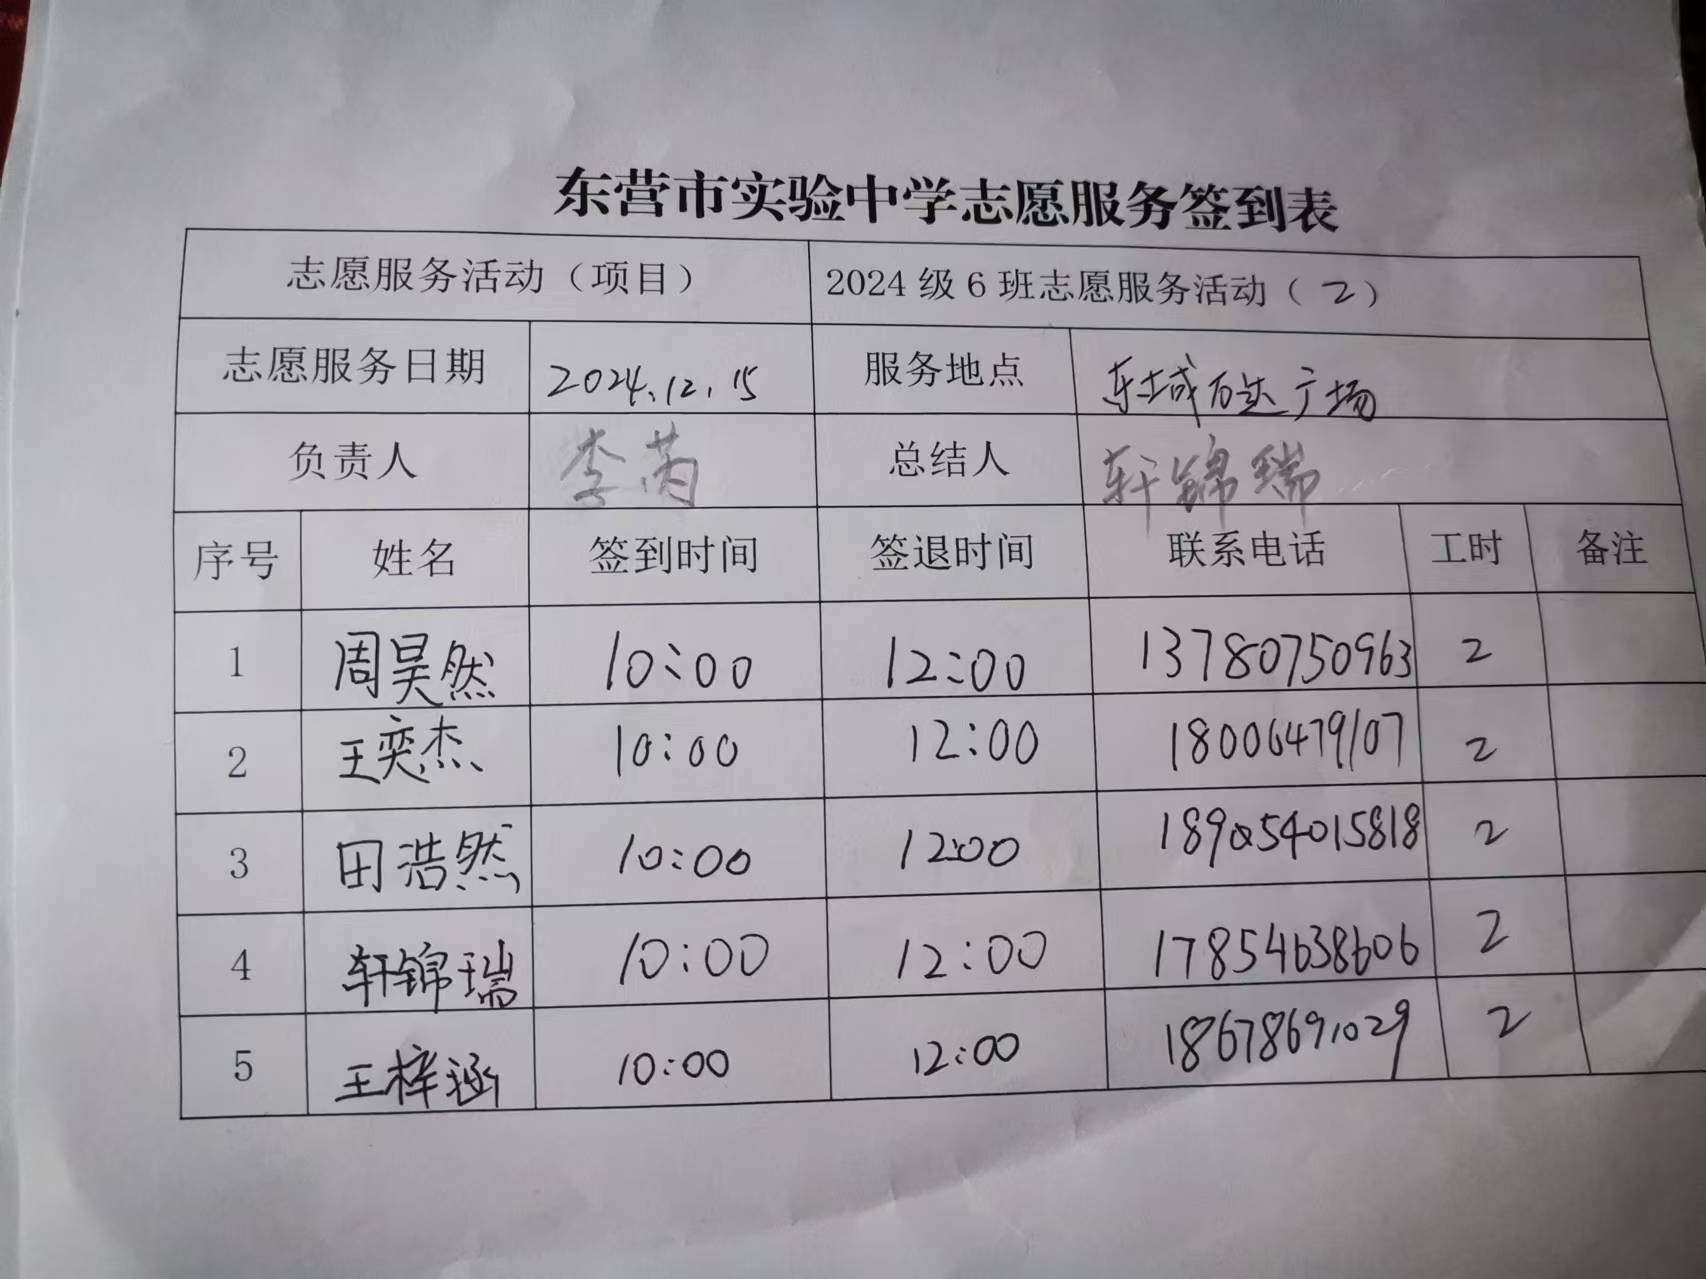 东营市实验中学志愿服务签到表
志愿服务活动（项目） 2024级6班志愿服务活动（2）
志愿服务日期 2024.12.15 服务地点 东城万达广场
负责人 李芮 总结人 轩锦瑞
序号 姓名 签到时间 签退时间 联系电话 工时 备注
1 周昊然 10:00 12:00 13780750963 2
2 王奕杰 10:00 12:00 18006479107 2
3 田浩然 10:00 12:00 189054015818 2
4 轩锦瑞 10:00 12:00 17854638606 2
5 王梓涵 10:00 12:00 18678691029 2